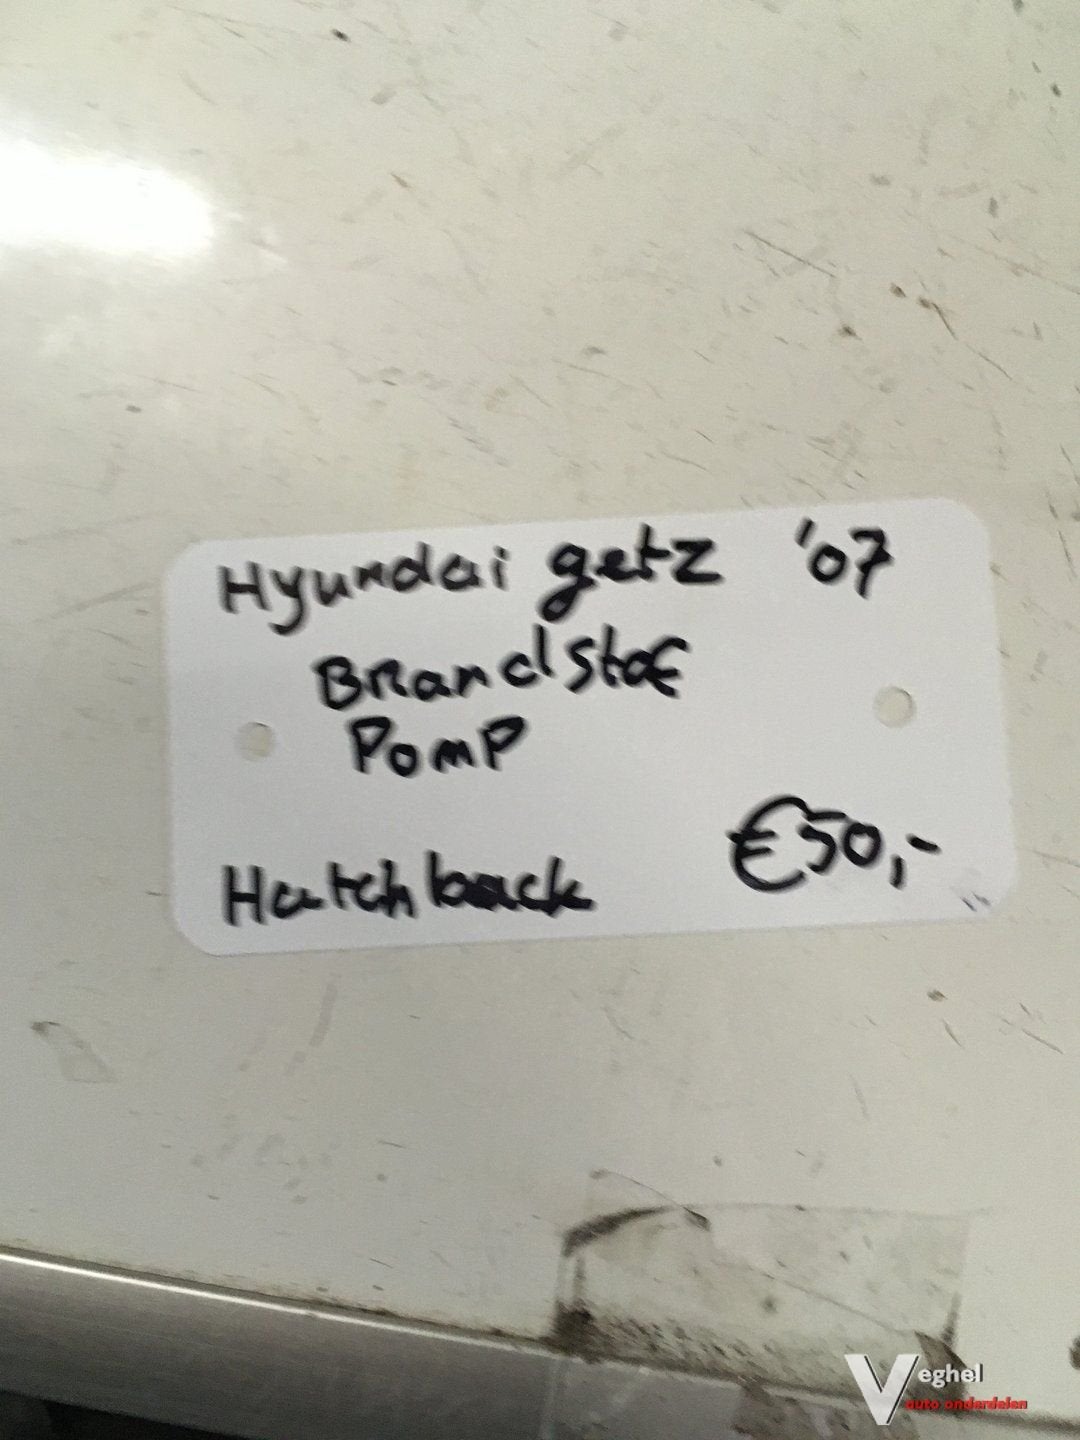 Hyundai getz '07
Brandstof
Pomp
Hatchback €50,-
Veghel
auto onderdelen